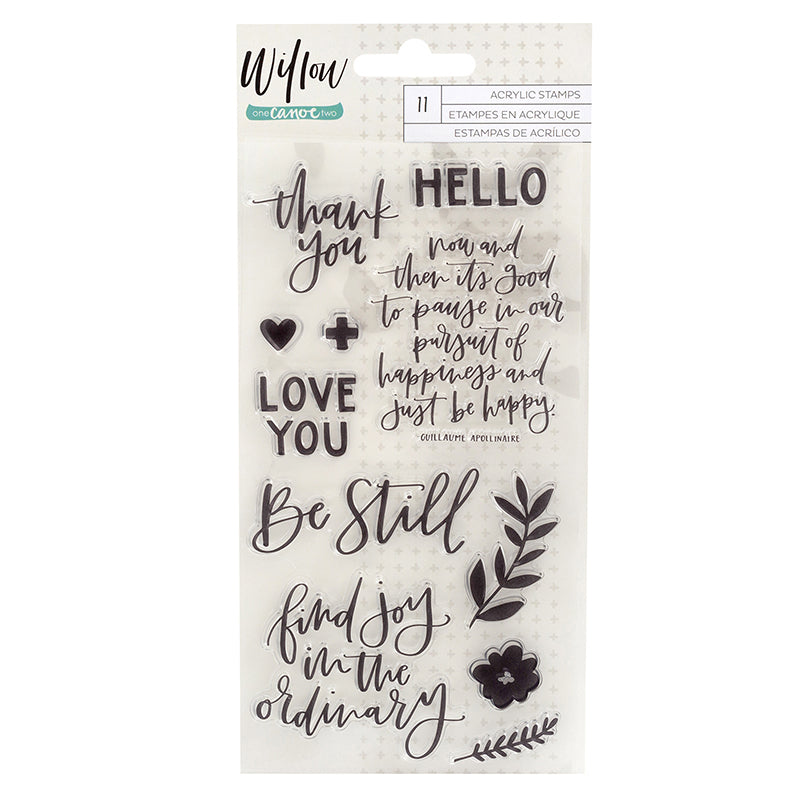 Willow
one canoe two
11
ACRYLIC STAMPS
ETAMPES EN ACRYLIQUE
ESTAMPAS DE ACRÍLICO
thank
you
HELLO
now and
then it's good
to pause in our
pursuit of
happiness and
just be happy.
GUILLAUME APOLLINAIRE
LOVE
YOU
Be Still
find joy
in the
ordinary